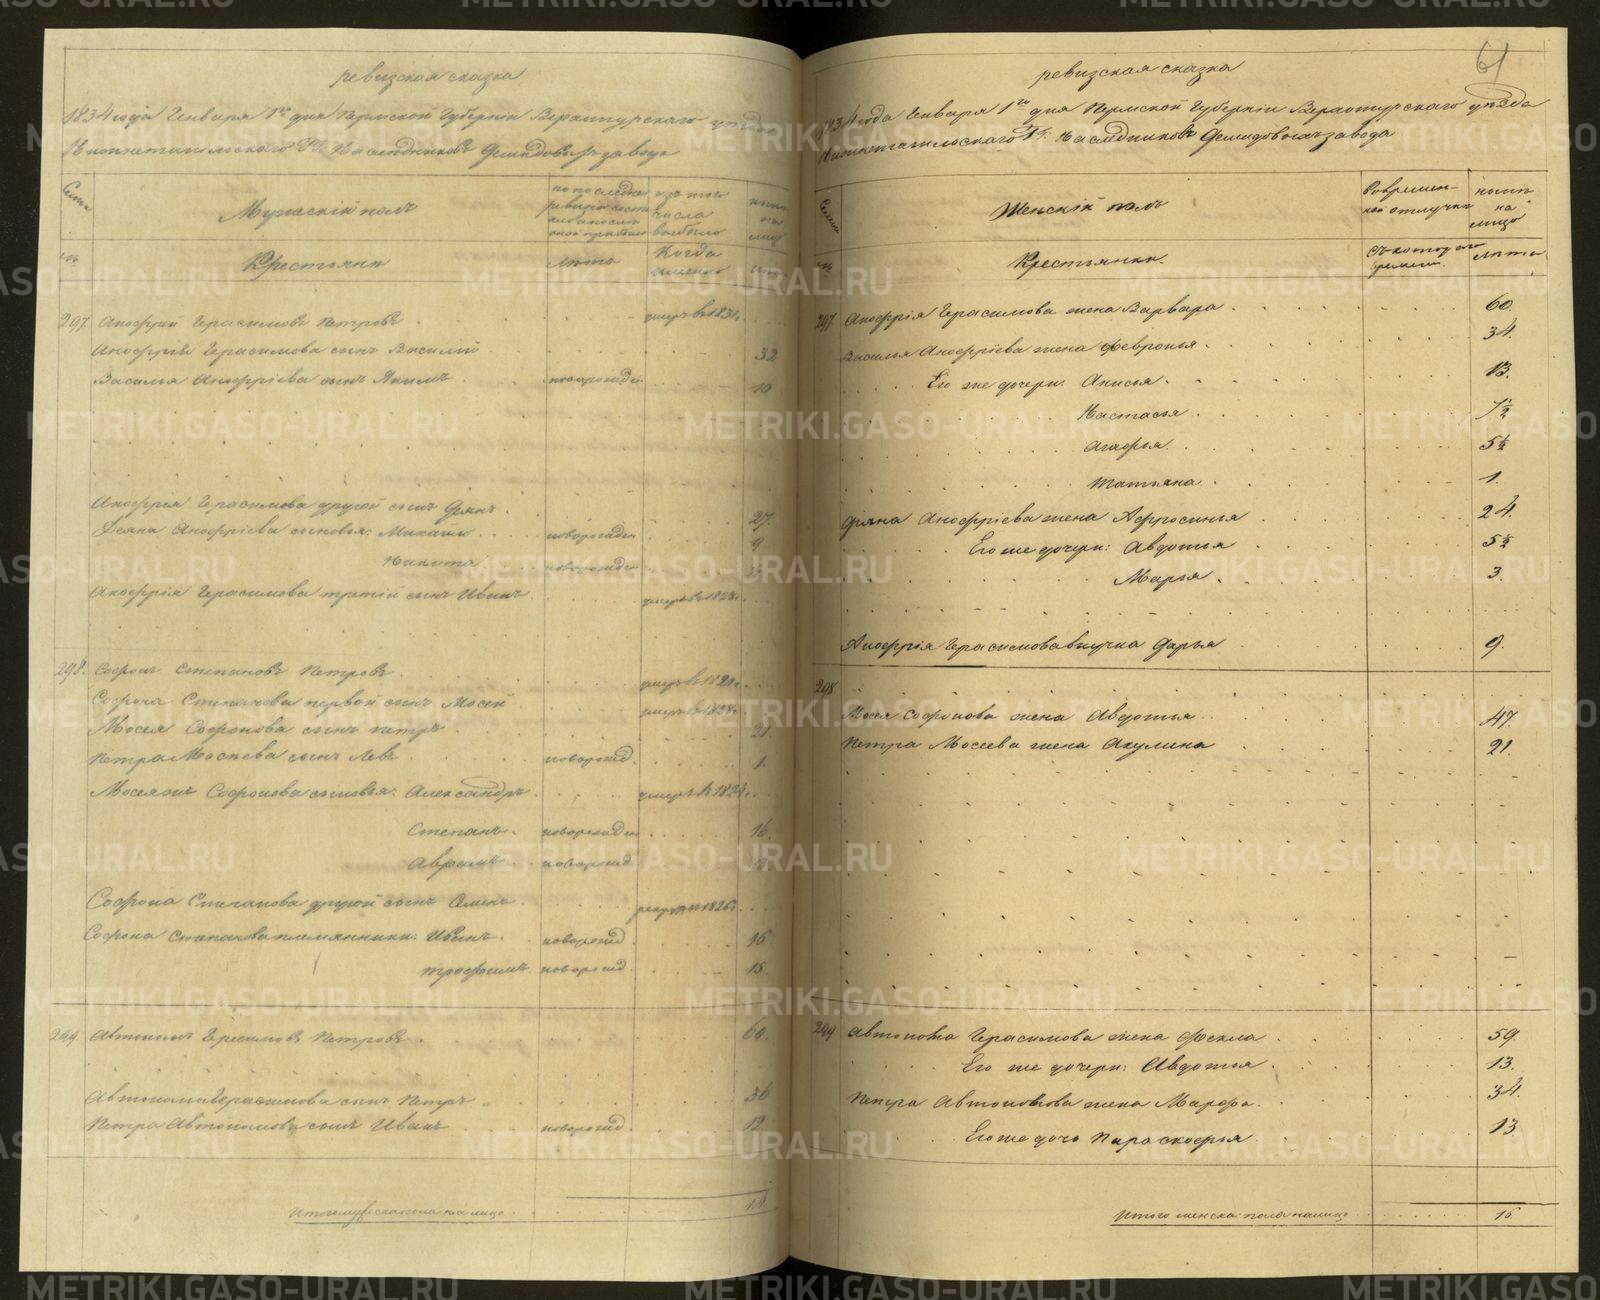 ревизская сказка
1834 года Генваря 1го дня Пермской Губернiи Верхотурскаго уѣзда
Нижнетагильскаго Гг. Наслѣдниковъ Демидовыхъ завода
Семьи
Мужескiй полъ
по послѣдней ревизiи состояло и после оной прибыло
изъ того числа выбыло
нынѣ на лицо
№
Крестьяне
лѣта
Когда именно
лѣта
297. Анофрiй Герасимовъ Петровъ умеръ въ 1831г.
Анофрiя Герасимова сынъ Василiй 32
Василья Анофрiева сынъ Якимъ новорожден 10
Анофрiя Герасимова другой сынъ Фянъ 27.
Анофрiева сыновья: Михайло новорожден 9
Никита новорожден
Анофрiя Герасимова третiй сынъ Иванъ умеръ въ 1828г.
298. Софронъ Степановъ Петровъ умеръ въ 1820г.
Софрона Степанова первой сынъ Мосей умеръ въ 1828г.
Мосея Софронова сынъ Петръ 21
Петра Мосеева сынъ Левъ новорожд. 1.
Мосея же Софронова сыновья: Александръ умеръ въ 1824г.
Степанъ новорожден 16.
Аврамъ новорожд 12
Софрона Степанова другой сынъ Семенъ рекрут 1826г.
Софрона Степанова племянники: Иванъ новорожд. 16
Трофимъ новорожд 15
299 Автономъ Герасимовъ Петровъ 60.
Автонома Герасимова сынъ Петръ 36
Петра Автономова сынъ Иванъ новорожд. 12.
Итого мужеска пола на лицо 18
61
ревизская сказка
1834 года Генваря 1го дня Пермской Губернiи Верхотурскаго уѣзда
Нижнетагильскаго Гг. Наслѣдниковъ Демидовыхъ завода
Семьи
Женскiй полъ
Во временной отлучкѣ
нынѣ на лицо
№
Крестьянки.
Съ котораго времени
лѣта
297 Анофрiя Герасимова жена Варвара 60.
Василья Анофрiева жена Февронья 34.
Его же дочери: Анисья. 13.
Настасья 7½
Агафья. 5½
Татьяна 1.
Фяна Анофрiева жена Афросинья 24.
Его же дочери: Авдотья 5½
Марья. 3.
Анофрiя Герасимова внучка Дарья 9.
298
Мосея Софронова жена Авдотья 47.
Петра Мосеева жена Акулина 21.
299 Автонома Герасимова жена Фекла 59.
Его же дочери: Авдотья. 13.
Петра Автономова жена Марфа. 34.
Его же дочь Парасковья 13
Итого женска пола налицо 15
METRIKI.GASO-URAL.RU